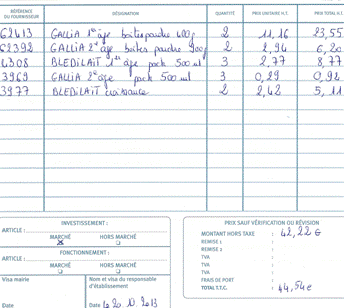 RÉFÉRENCE DU FOURNISSEUR DÉSIGNATION QUANTITÉ PRIX UNITAIRE H.T. PRIX TOTAL H.T.
62413 GALLIA 1er âge boites poudre 400g 2 11,16 23,55
62392 GALLIA 2e âge boites poudre 900g 2 2,94 6,20
4308 BLEDILAIT 1er âge pack 500 ml 3 2,77 8,77
3969 GALLIA 2e âge pack 500 ml 3 0,29 0,92
3977 BLEDILAIT croissance 2 2,42 5,11
INVESTISSEMENT :
ARTICLE :
MARCHÉ HORS MARCHÉ
FONCTIONNEMENT :
ARTICLE :
MARCHÉ HORS MARCHÉ
Visa mairie Nom et visa du responsable d'établissement
Date Date Le 20 2013
PRIX SAUF VÉRIFICATION OU RÉVISION
MONTANT HORS TAXE : 42,22 €
REMISE 1 :
REMISE 2 :
TVA :
TVA :
TVA :
FRAIS DE PORT
TOTAL T.T.C. : 44,54 €